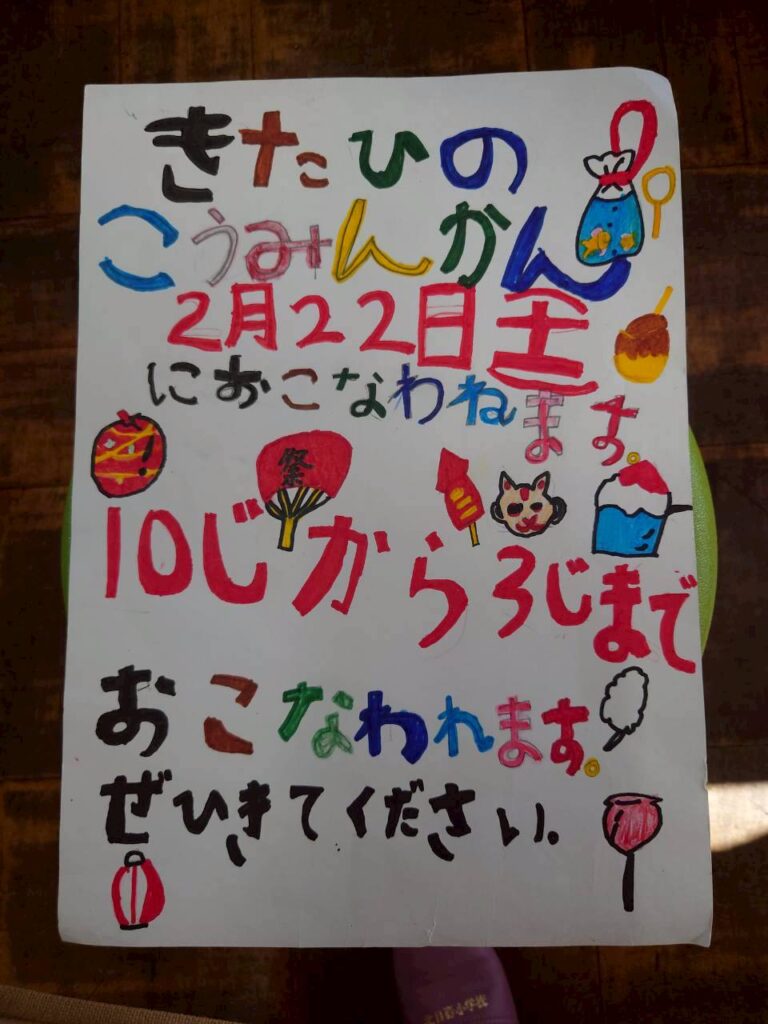 きたひの
こうみんかん
2月22日土
におこなわねます。
祭
10じから3じまで
おこなわれます。
ぜひきてください。
北日野小学校